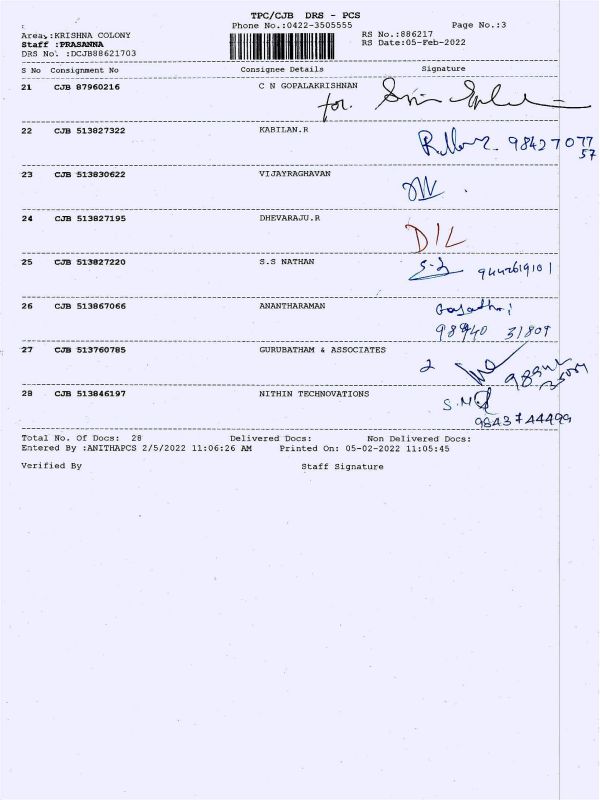 TPC/CJB DRS - PCS
Phone No.:0422-3505555 Page No.:3
Area :KRISHNA COLONY RS No.:886217
Staff :PRASANNA RS Date:05-Feb-2022
DRS No. :DCJB88621703
S No Consignment No Consignee Details Signature
21 CJB 87960216 C N GOPALAKRISHNAN
for.
22 CJB 513827322 KABILAN.R
98427077
57
23 CJB 513830622 VIJAYRAGHAVAN
24 CJB 513827195 DHEVARAJU.R
D/L
25 CJB 513827220 S.S NATHAN
9442619101
26 CJB 513867066 ANANTHARAMAN
31809
27 CJB 513760785 GURUBATHAM & ASSOCIATES
28 CJB 513846197 NITHIN TECHNOVATIONS
9843744499
Total No. Of Docs: 28 Delivered Docs: Non Delivered Docs:
Entered By :ANITHAPCS 2/5/2022 11:06:26 AM Printed On: 05-02-2022 11:05:45
Verified By Staff Signature